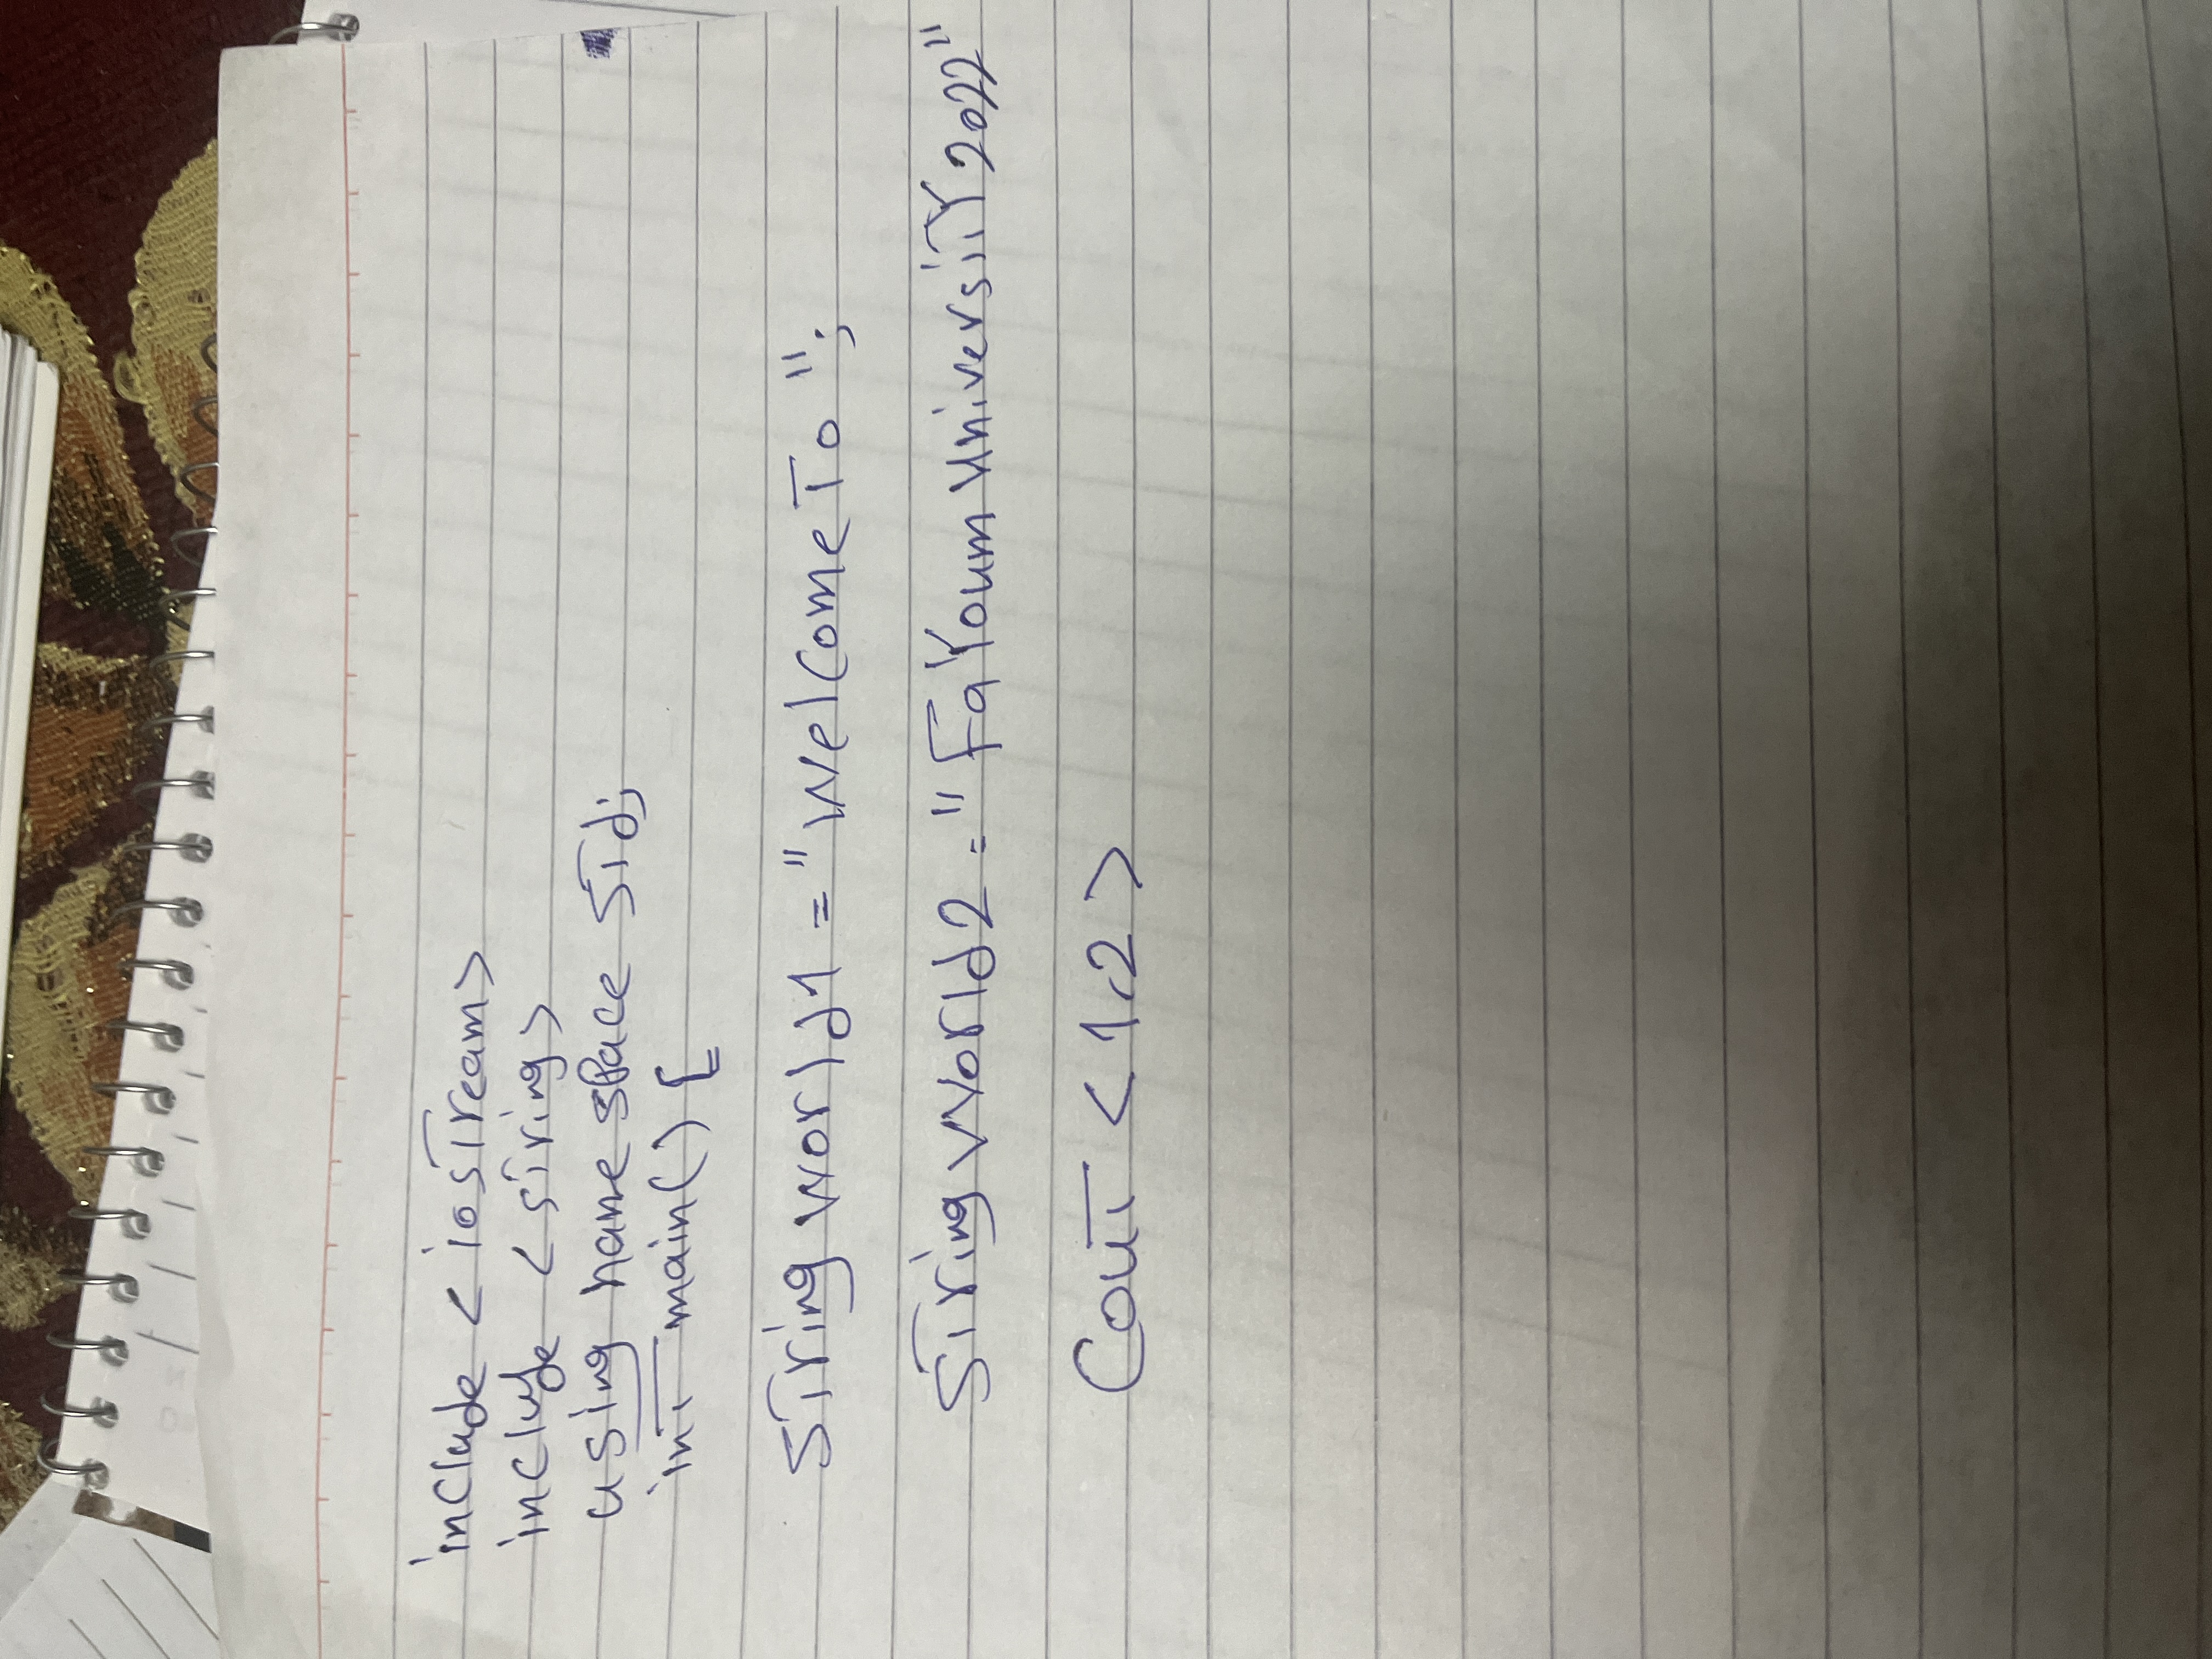 include < iostream>
include <string>
using name space std;
int main() [
string world1 = "Welcome To ";
string World2 = "FaYoum UniversiTY 2022"
Cout < 1,2 >